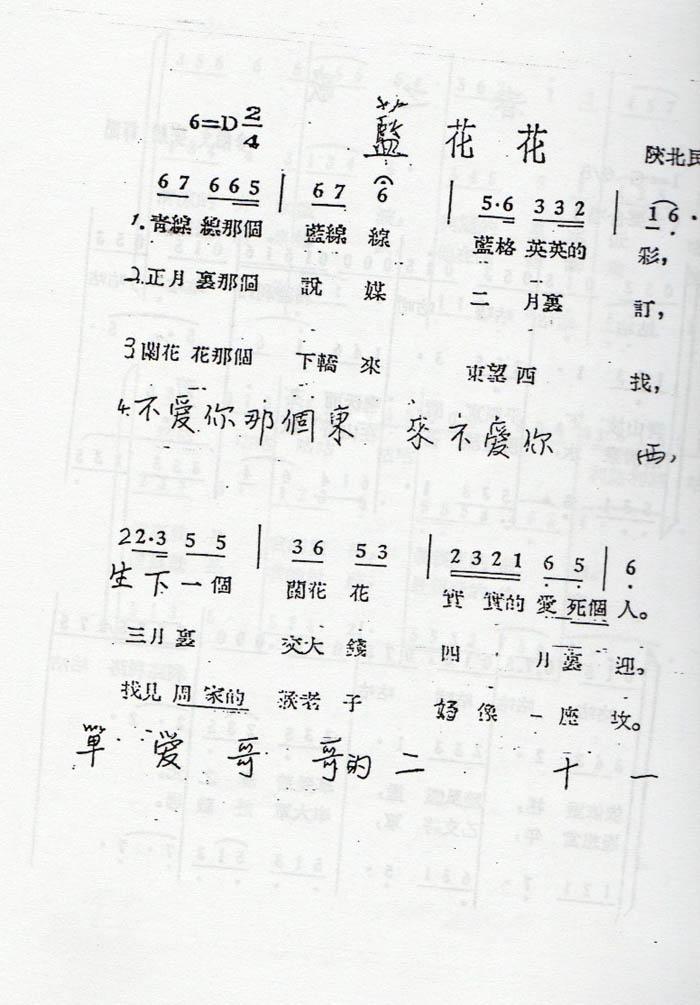 6=D 2/4 藍花花 陝北民
67 665 | 67 6 | 5·6 332 | 16·
1.青線線那個 藍線線 藍格英英的彩,
2.正月裏那個 說媒 二月裏訂,
3.蘭花花那個 下轎來 東望西找,
4.不愛你那個東 來不愛你 西,
22·3 55 | 36 53 | 2321 65 | 6
生下一個 蘭花花 實實的愛死個人。
三月裏 交大錢 四月裏迎。
找見周家的 猴老子 好像一座坟。
單愛哥 哥的二 十一